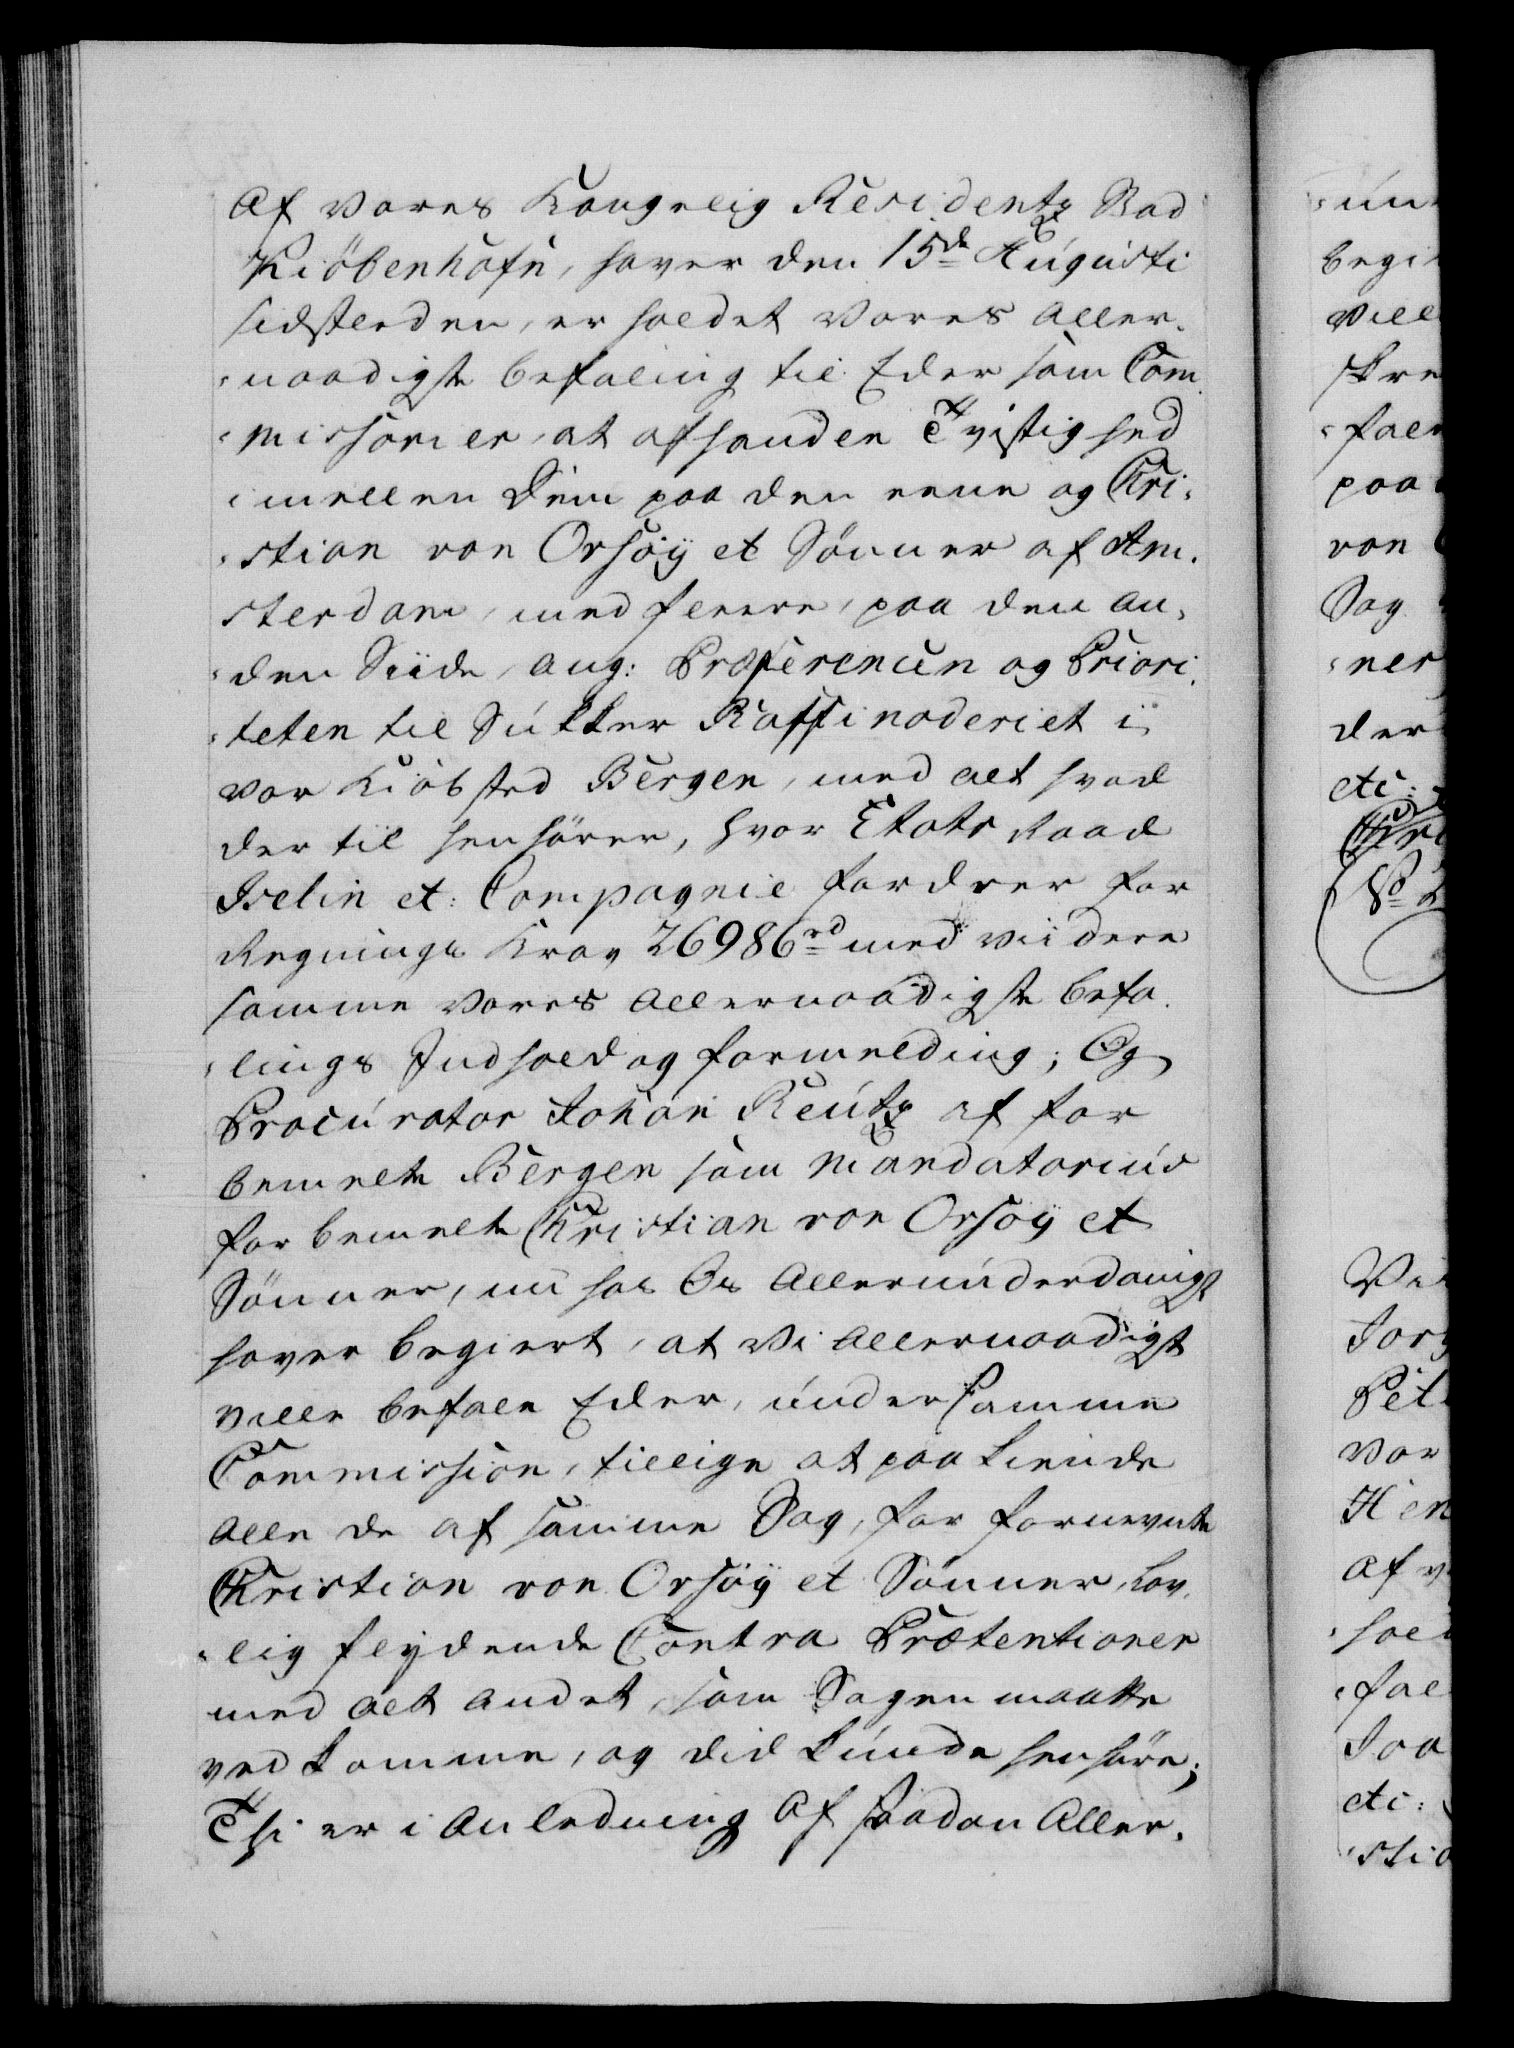 Af Vores Kongelig Residentz Stad
Kiöbenhafn, haver den 15de Augusti
sidstleden, er holdet Vores Aller-
naadigste befaling til Eder som Com-
missarier, at afhandle Tvistighed
imellem Dem paa den eene og Chri-
stian von Orsöÿ et Sönner af Am-
sterdam, med fleere, paa den an-
den Siide, ang: Præferencen og Priori-
teten til Sukker Raffinaderiet i
vor Kiöbsted Bergen, med alt hvad
der til henhörer, hvor Etats Raad
Iselin et: Compagnie fordrer for
Regnings Krav 26986rd med viidere
samme Vores Allernaadigste befa-
lings Indhold og formelding; Og
Procurator Johan Reutz af for
bemelte Bergen som Mandatarius
for bemelte Christian von Orsöÿ et
Sönner, nu hos Os Allerunderdanigst
haver begiert, at Vi Allernaadigst
ville befale Eder, under samme
Commission, tillige at paakiende
alle de af samme Sag, for fornevnte
Christian von Orsöÿ et Sönner, lov-
lig fleydende Contra Prætentioner
med alt andet, som Sagen maatte
vedkomme, og did kunde henhöre;
Thi er i Anledning Af saadan Aller-